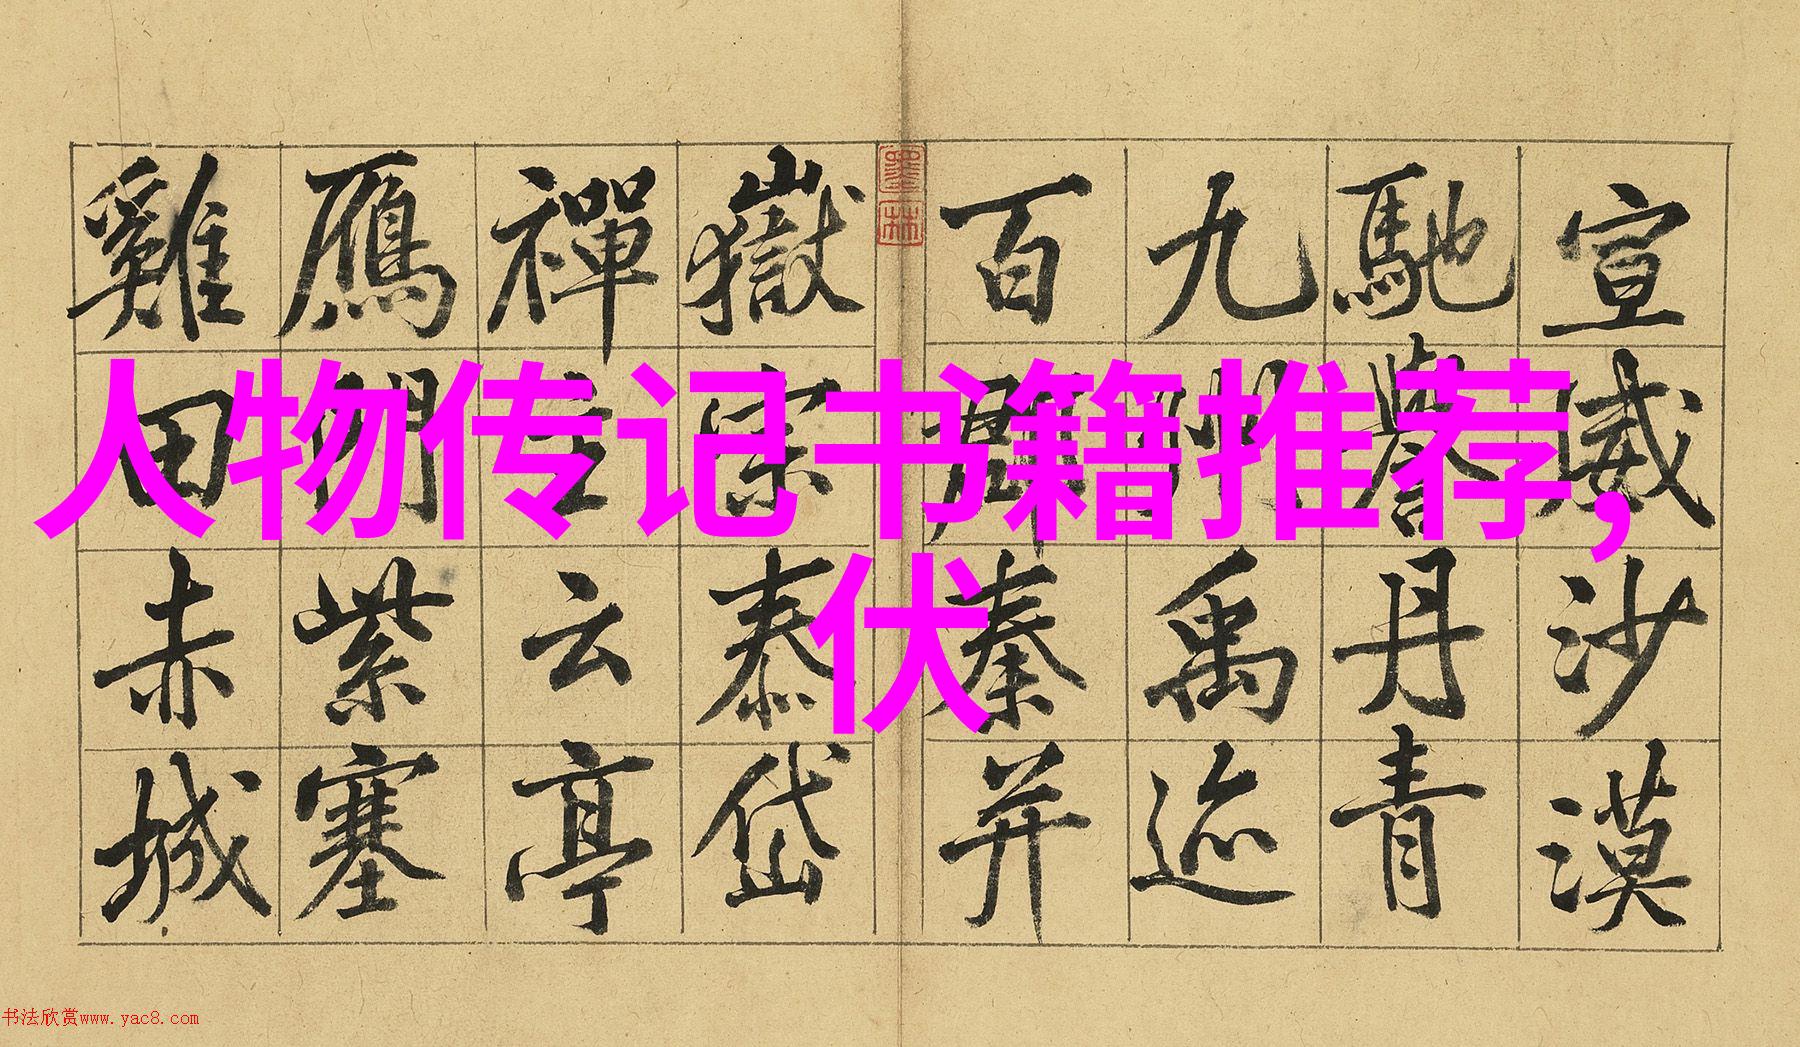 人物传记书籍推荐，
伏
宣威沙漠
馳譽丹青
九州禹迹
百郡秦并
墨林
嶽宗泰岱
禪主云亭
鴈門紫塞
雞田赤城
书法欣赏www.yac8.com